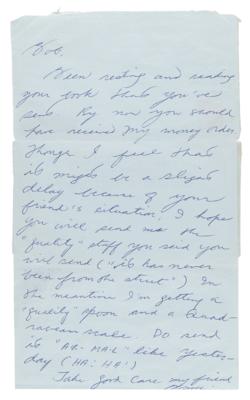 Bob.
Been resting and reading
your book that you've
sent. By now you should
have receive my money order.
Though I feel that
it might be a slight
delay because of your
friend's situation. I hope
you will send me the
"quality" stuff you said you
will send ("it has never
been from the street") In
the meantime I'm getting a
"quality" spoon and a
scale. Do send
it "Air-Mail" like yester-
day (HA! HA!)
Take good care my friend